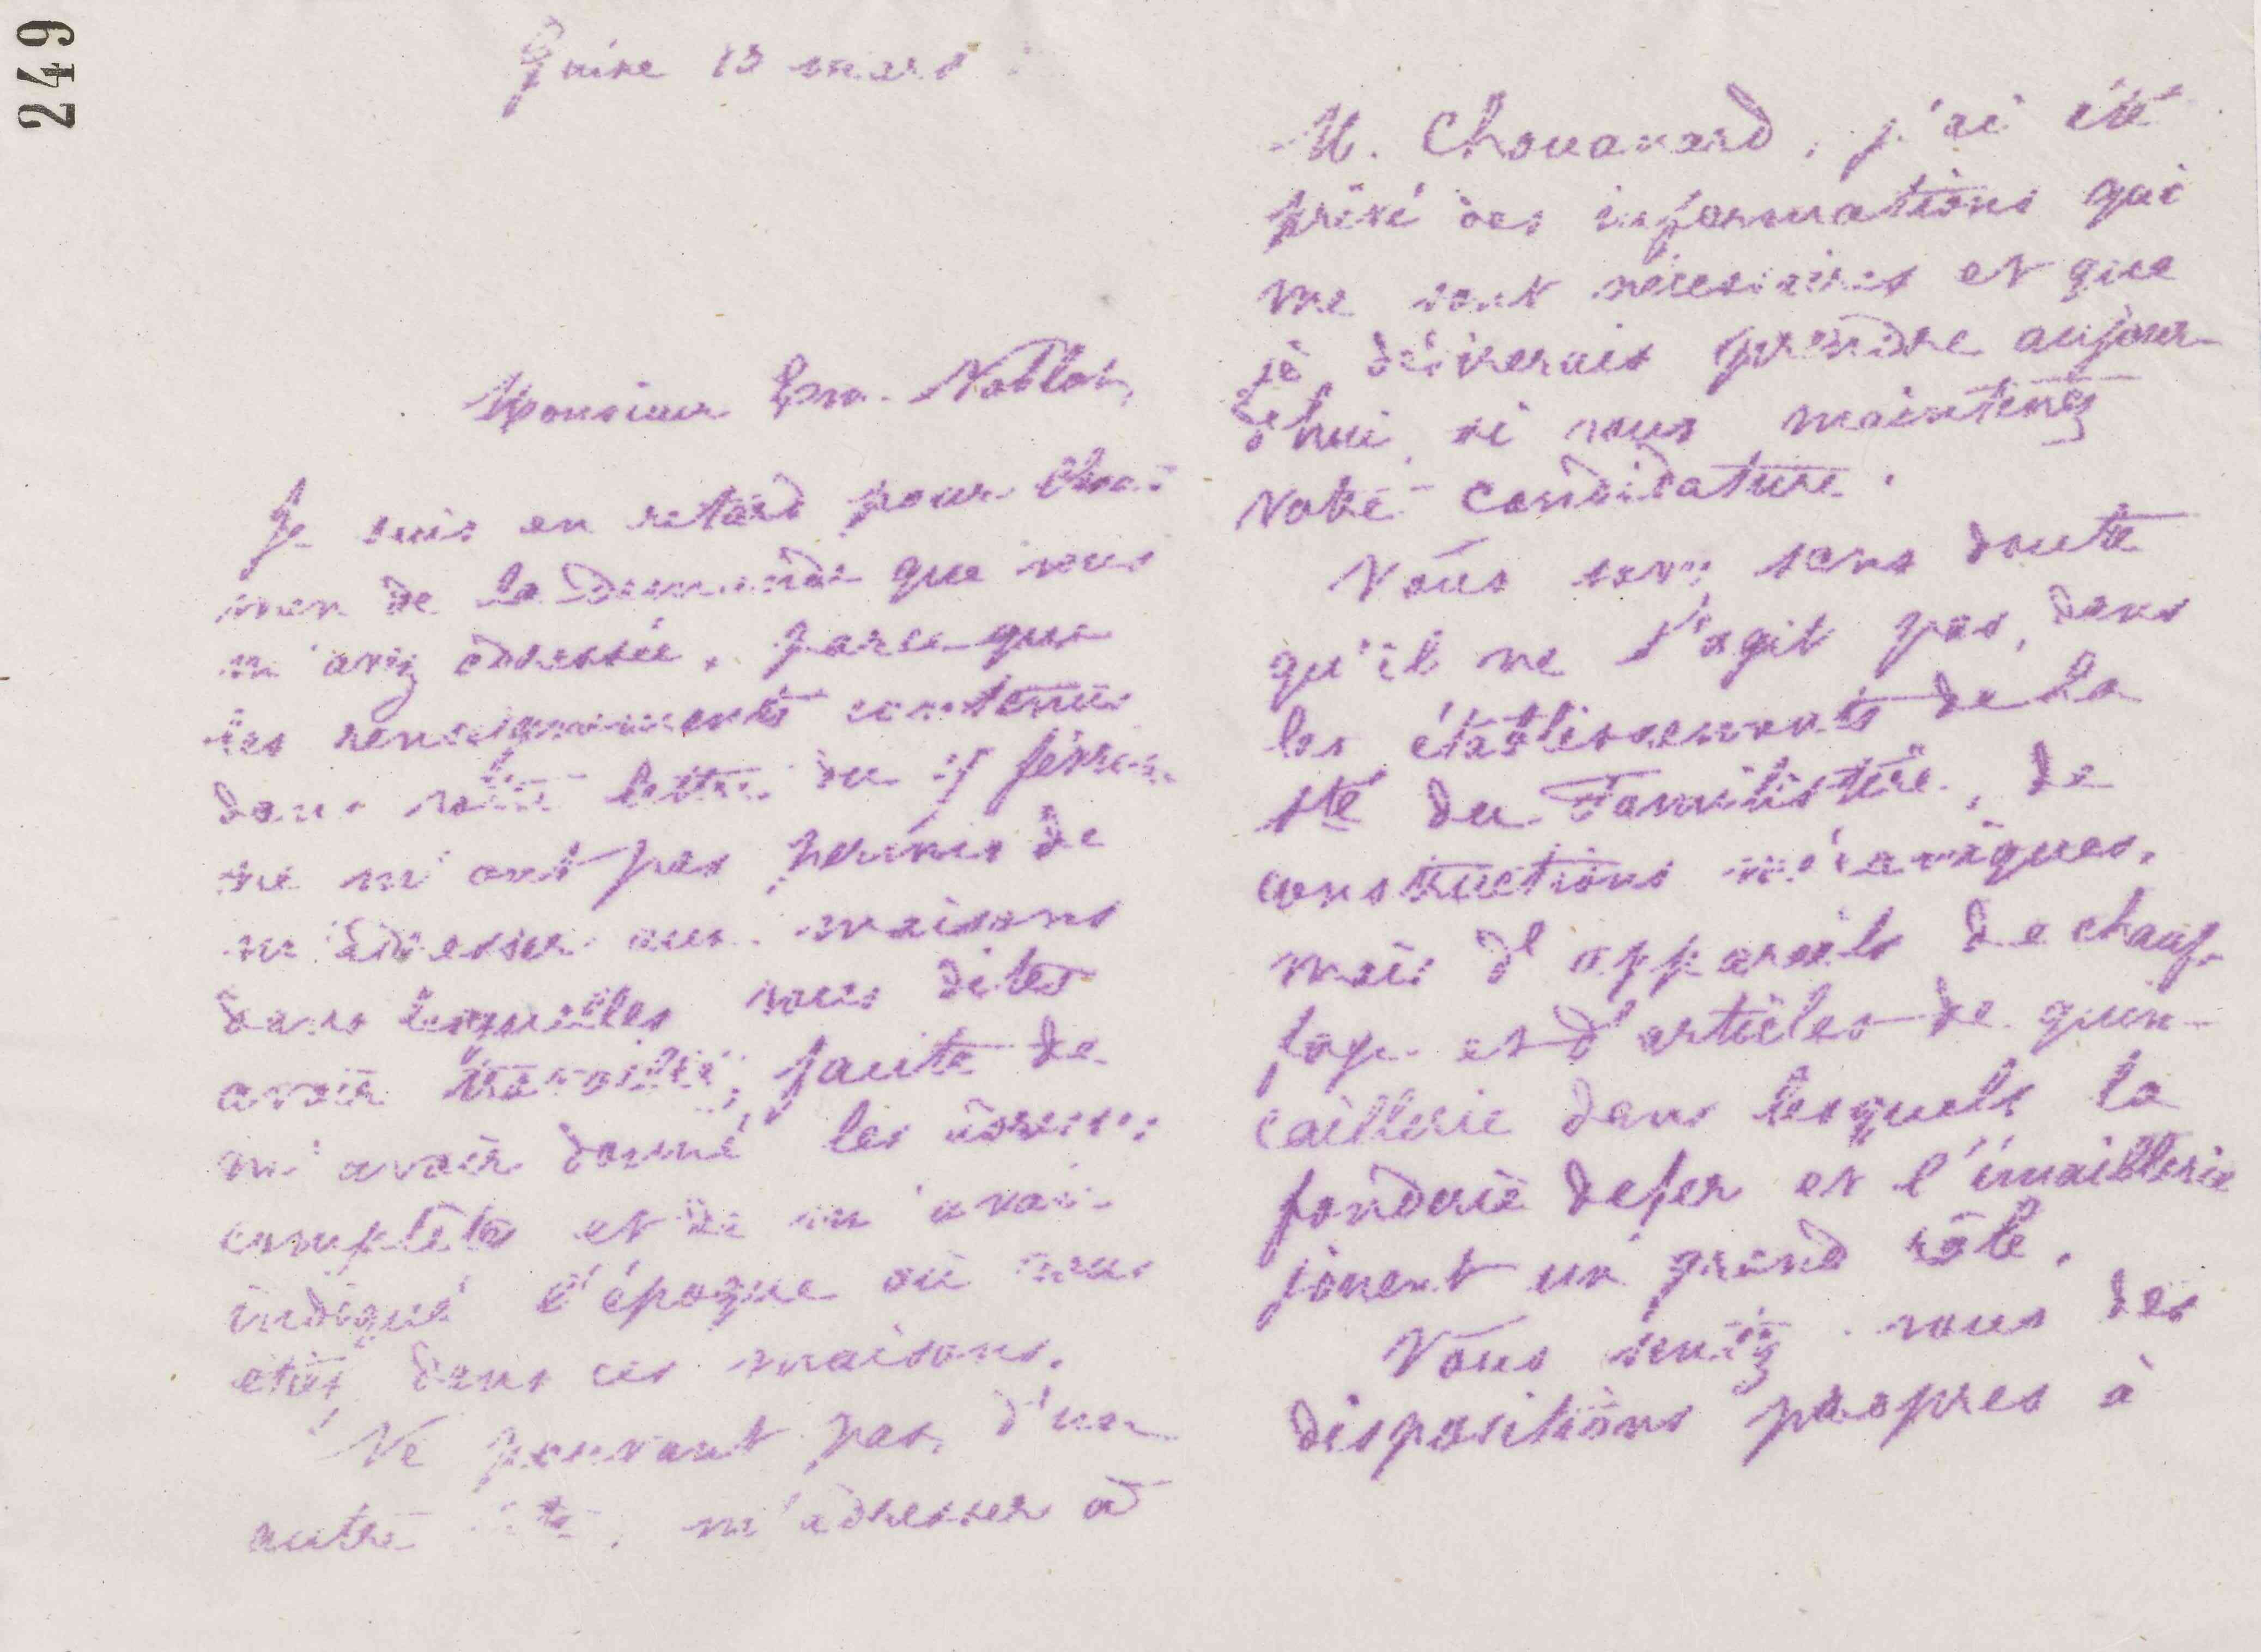 249
Guise 13 mars
Monsieur Em. Noblot,
Je suis en retard pour l'exa-
men de la demande que vous
m'avez adressée, parce que
les renseignements contenus
dans votre lettre du 7 février
ne m'ont pas permis de
m'adresser aux maisons
dans lesquelles vous dites
avoir travaillé, faute de
m'avoir donné les adresses
complètes et de m'avoir
indiqué l'époque où vous
étiez dans ces maisons.
Ne pouvant pas, d'un
autre côté, m'adresser à
M. Chouanard, j'ai été
privé des informations qui
me sont nécessaires et que
je désirerais prendre aujour-
d'hui, si vous maintenez
votre candidature.
Vous savez sans doute
qu'il ne s'agit pas, dans
les établissements de la
Sté du Familistère, de
constructions mécaniques,
mais d'appareils de chauf-
fage et d'articles de quin-
caillerie dans lesquels la
fonderie de fer et l'émaillerie
jouent un grand rôle.
Vous sentez-vous des
dispositions propres à